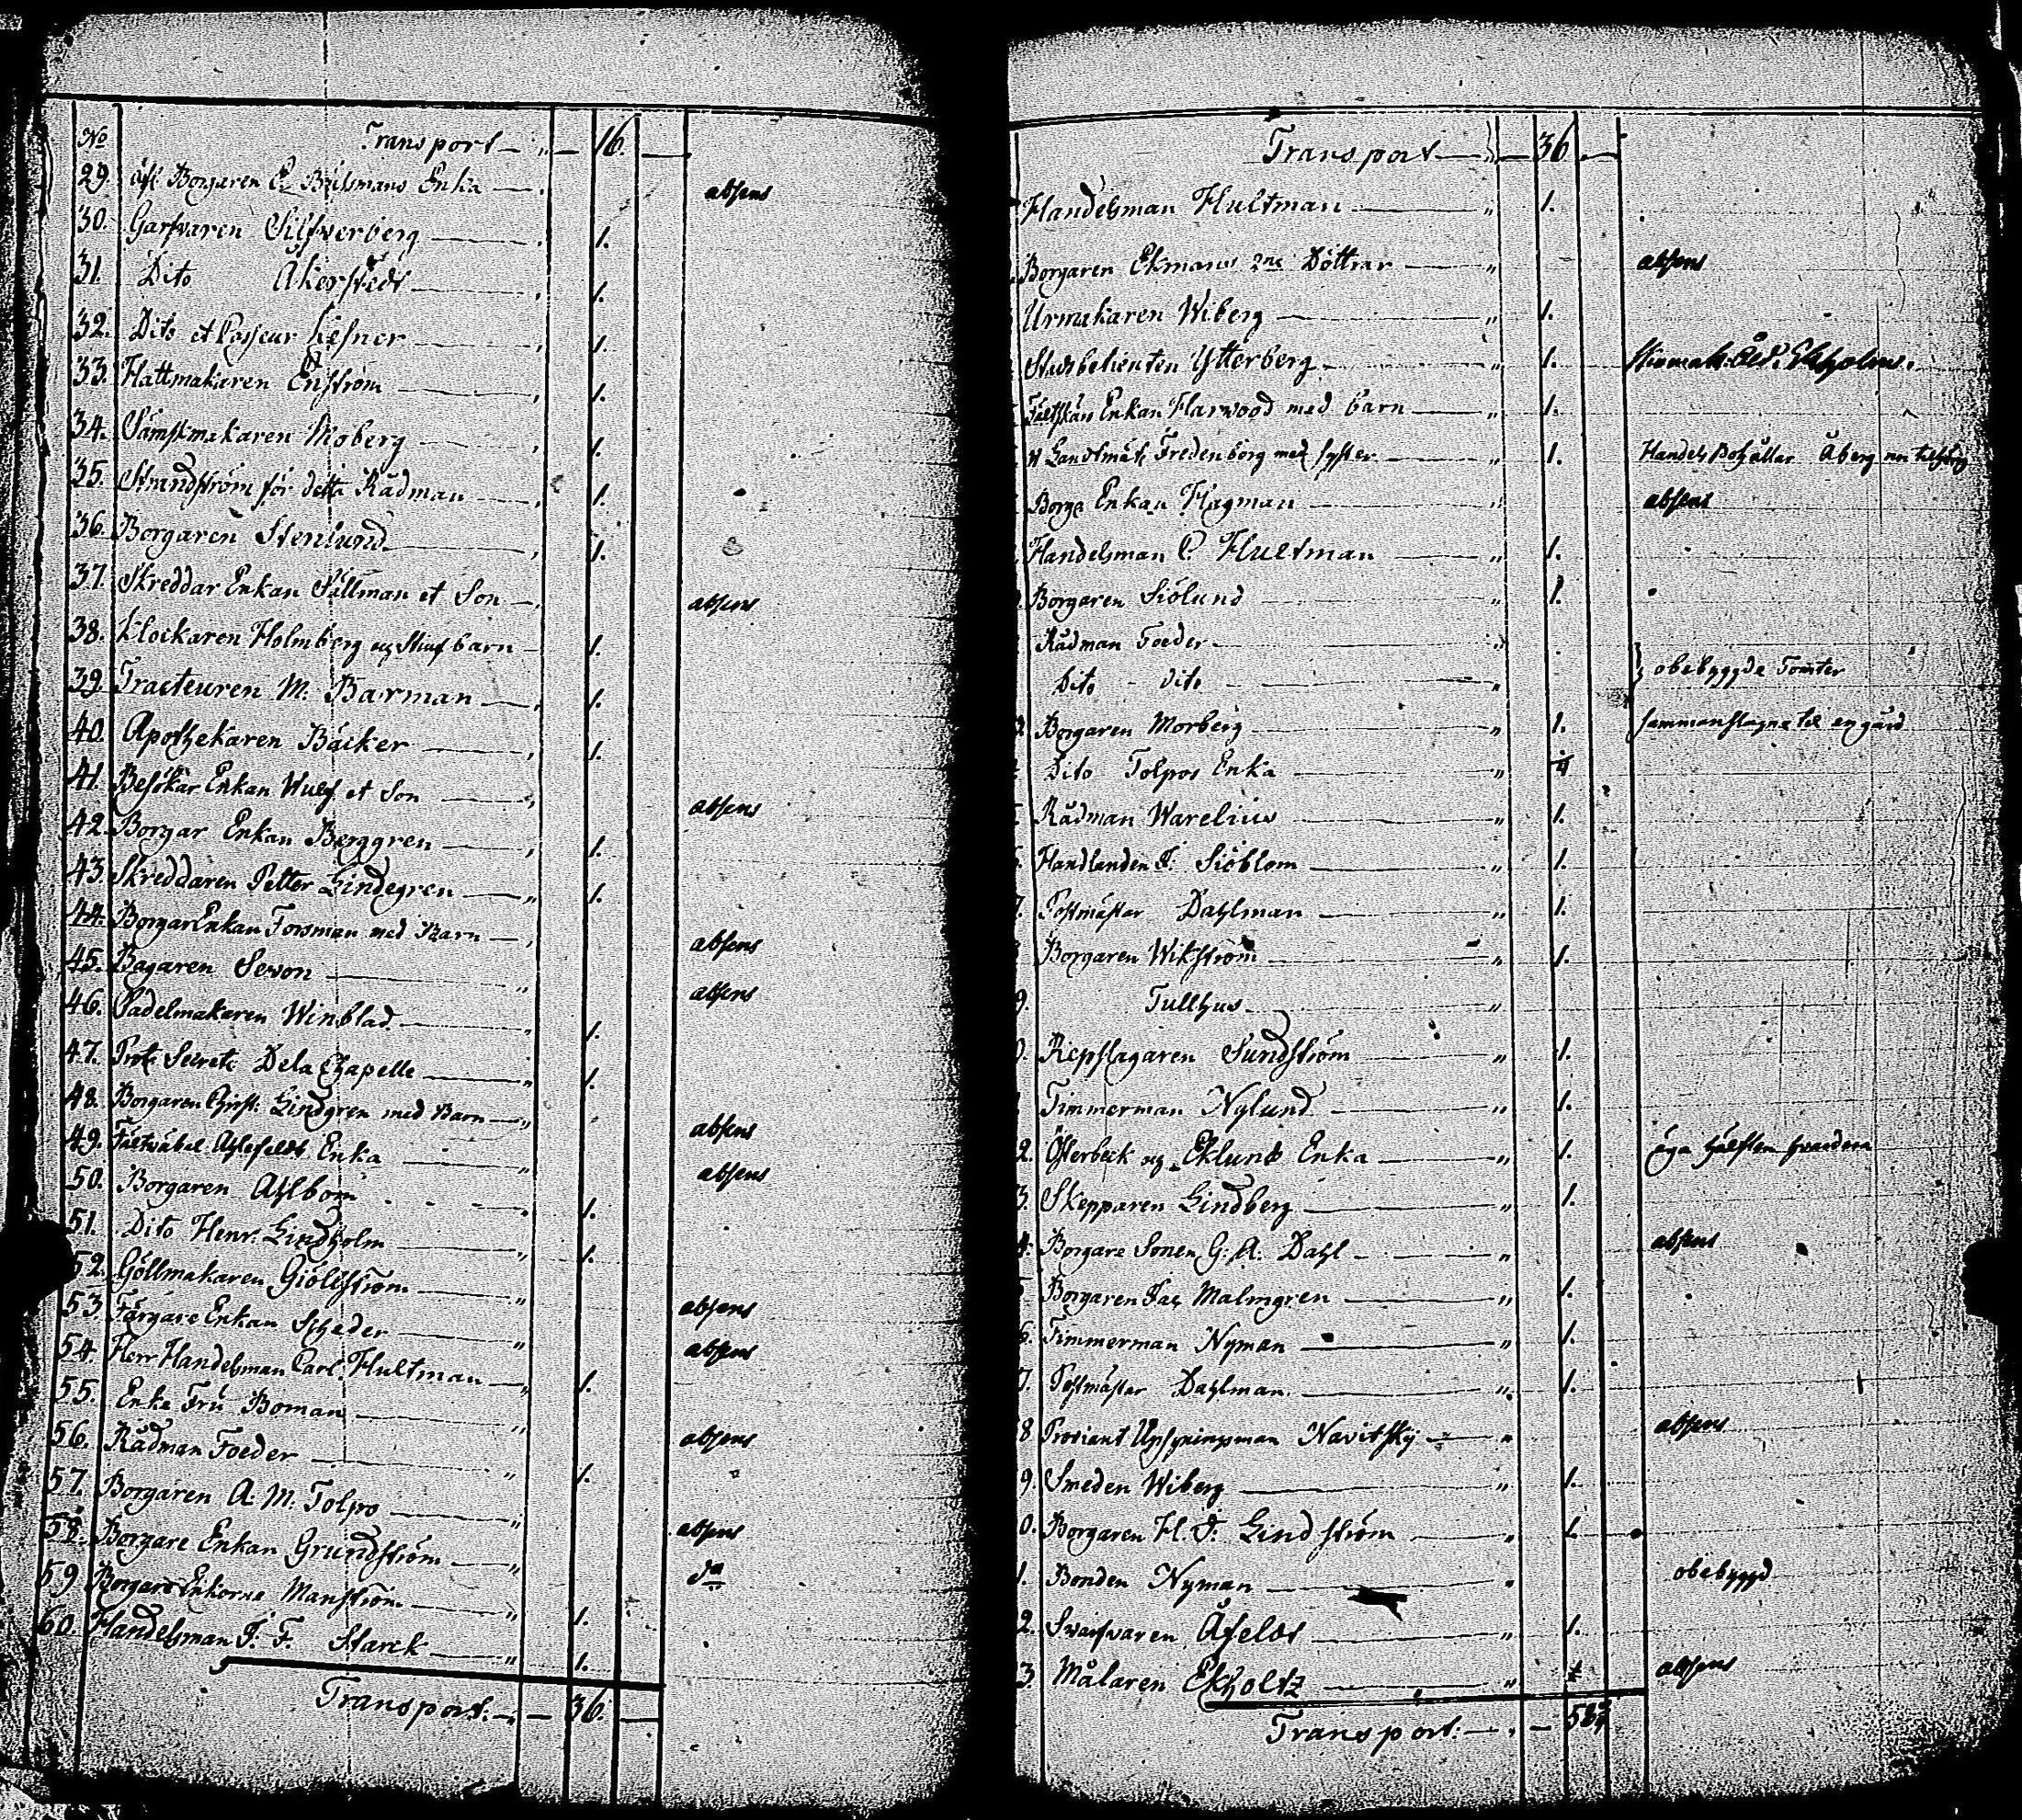 No Transport — „ — 16. —
29. Borgaren Enka — absens
30. Garfvaren Silfverberg — 1.
31. Dito Åkerstedt — 1.
32. Dito et Lefner — 1.
33. Hattmakaren Enström — 1.
34. Sämskmakaren Moberg — 1.
35. Strandström för detta Rådman — 1.
36. Borgaren Stenlund — 1.
37. Skreddar Enkan Sällman et Son — absens
38. Klockaren Holmberg og barn — 1.
39. Tracteuren M. Barman — 1.
40. Apothekaren Bäcker — 1.
41. Besökar Enkan Wulf et Son — absens
42. Borgar Enkan Berggren — 1.
43. Skreddaren Petter Lindegren — „ 1.
44. Borgar Enkan Forsman med Barn — absens
45. Bagaren Sevon — „ absens
46. Sadelmakaren Winblad — „ 1.
47. Secret: Dela Chapelle — „ 1.
48. Borgaren Christ: Lindgren med Barn — „ absens
49. Enka — „ absens
50. Borgaren Ahlbom „ 1.
51. Dito Henr: Lindholm — „ 1.
52. Göllmakaren — „ absens
53. Färgare Enkan Scheder — „ absens
54. Herr Handelsman Carl Hultman — „ 1.
55. Enke Fru Boman — „ absens
56. Rådman Foeder — „ 1.
57. Borgaren A. M. Tolpo — „ absens
58. Borgare Enkan Grundström — „ do
59. Borgare Enkorne Manström — „ 1.
60. Handelsman J. F. Starck — „ 1.
Transport. — „ — 36. —
Transport — „ — 36. —
Handelsman Hultman — „ 1.
Borgaren Ekmans 2ne Döttrar — „ absens
Urmakaren Wiberg — „ 1.
Stadsbetienten Ytterberg — „ 1.
Enkan Harwood med barn — „ 1.
Landtmät: Fredenborg med syster — „ 1. Handels Åberg
Borga Enkan Hagman — „ absens
Handelsman C. Hultman — „ 1.
Borgaren Siölund — „ 1.
Rådman Foeder — „
Dito - dito — „ obebyggde Tomter
Borgaren Morberg — „ 1. sammanslagne til en gård
Dito Tolpos Enka — „
Rådman Warelius — „ 1.
Handlanden J. Siöblom — „ 1.
7. Postmästar Dahlman — „ 1.
Borgaren Wikström — „ 1.
9. Tullhus — „
0. Repslagaren Sundström — „ 1.
Timmerman Nylund — „ 1.
2. Österbeck og Eklunds Enka — „ 1. äga hälften hvardera
3. Skepparen Lindberg — „ 1.
4. Borgare Sonen G: A: Dahl — „ absens
Borgaren Jac Malmgren — „ 1.
6. Timmerman Nyman — „ 1.
7. Postmästar Dahlman — „ 1.
8 Proviant Navitskÿ — „ absens
9. Smeden Wiberg — „ 1.
0. Borgaren H. J. Lindström — „ 1.
1. Bonden Nyman — „ obebyggd
2. Swarfvaren Åfeldt — „ 1.
3. Målaren Ekholtz — „ absens
Transport: — „ —